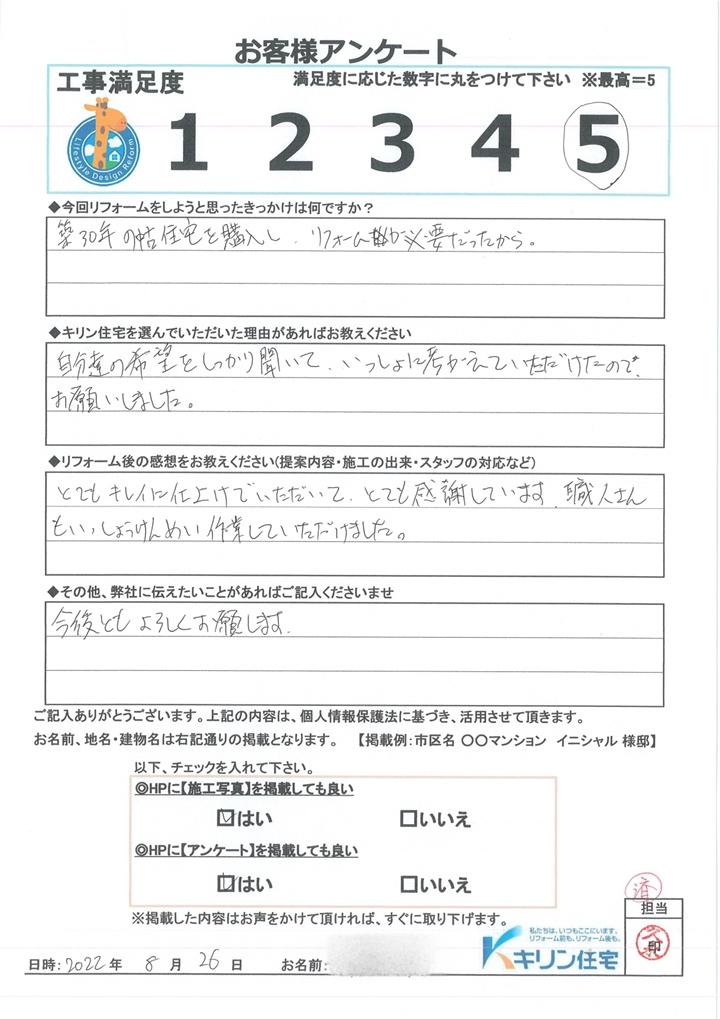 お客様アンケート
工事満足度 満足度に応じた数字に丸をつけて下さい ※最高＝5
Lifestyle Design Reform
1 2 3 4 5
◆今回リフォームをしようと思ったきっかけは何ですか？
築30年の中古住宅を購入し、リフォームが必要だったから。
◆キリン住宅を選んでいただいた理由があればお教えください
自分達の希望をしっかり聞いて、いっしょに考がえていただけたので、
お願いしました。
◆リフォーム後の感想をお教えください(提案内容・施工の出来・スタッフの対応など)
とてもキレイに仕上げていただいて、とても感謝しています。職人さん
もいっしょうけんめい作業していただけました。
◆その他、弊社に伝えたいことがあればご記入くださいませ
今後ともよろしくお願します。
ご記入ありがとうございます。上記の内容は、個人情報保護法に基づき、活用させて頂きます。
お名前、地名・建物名は右記通りの掲載となります。 【掲載例：市区名 〇〇マンション イニシャル 様邸】
以下、チェックを入れて下さい。
◎HPに【施工写真】を掲載しても良い
☑はい □いいえ
◎HPに【アンケート】を掲載しても良い
☑はい □いいえ
※掲載した内容はお声をかけて頂ければ、すぐに取り下げます。
済
担当
印
私たちは、いつもここにいます。
リフォーム前も、リフォーム後も。
キリン住宅
日時：2022年 8月 26日 お名前：